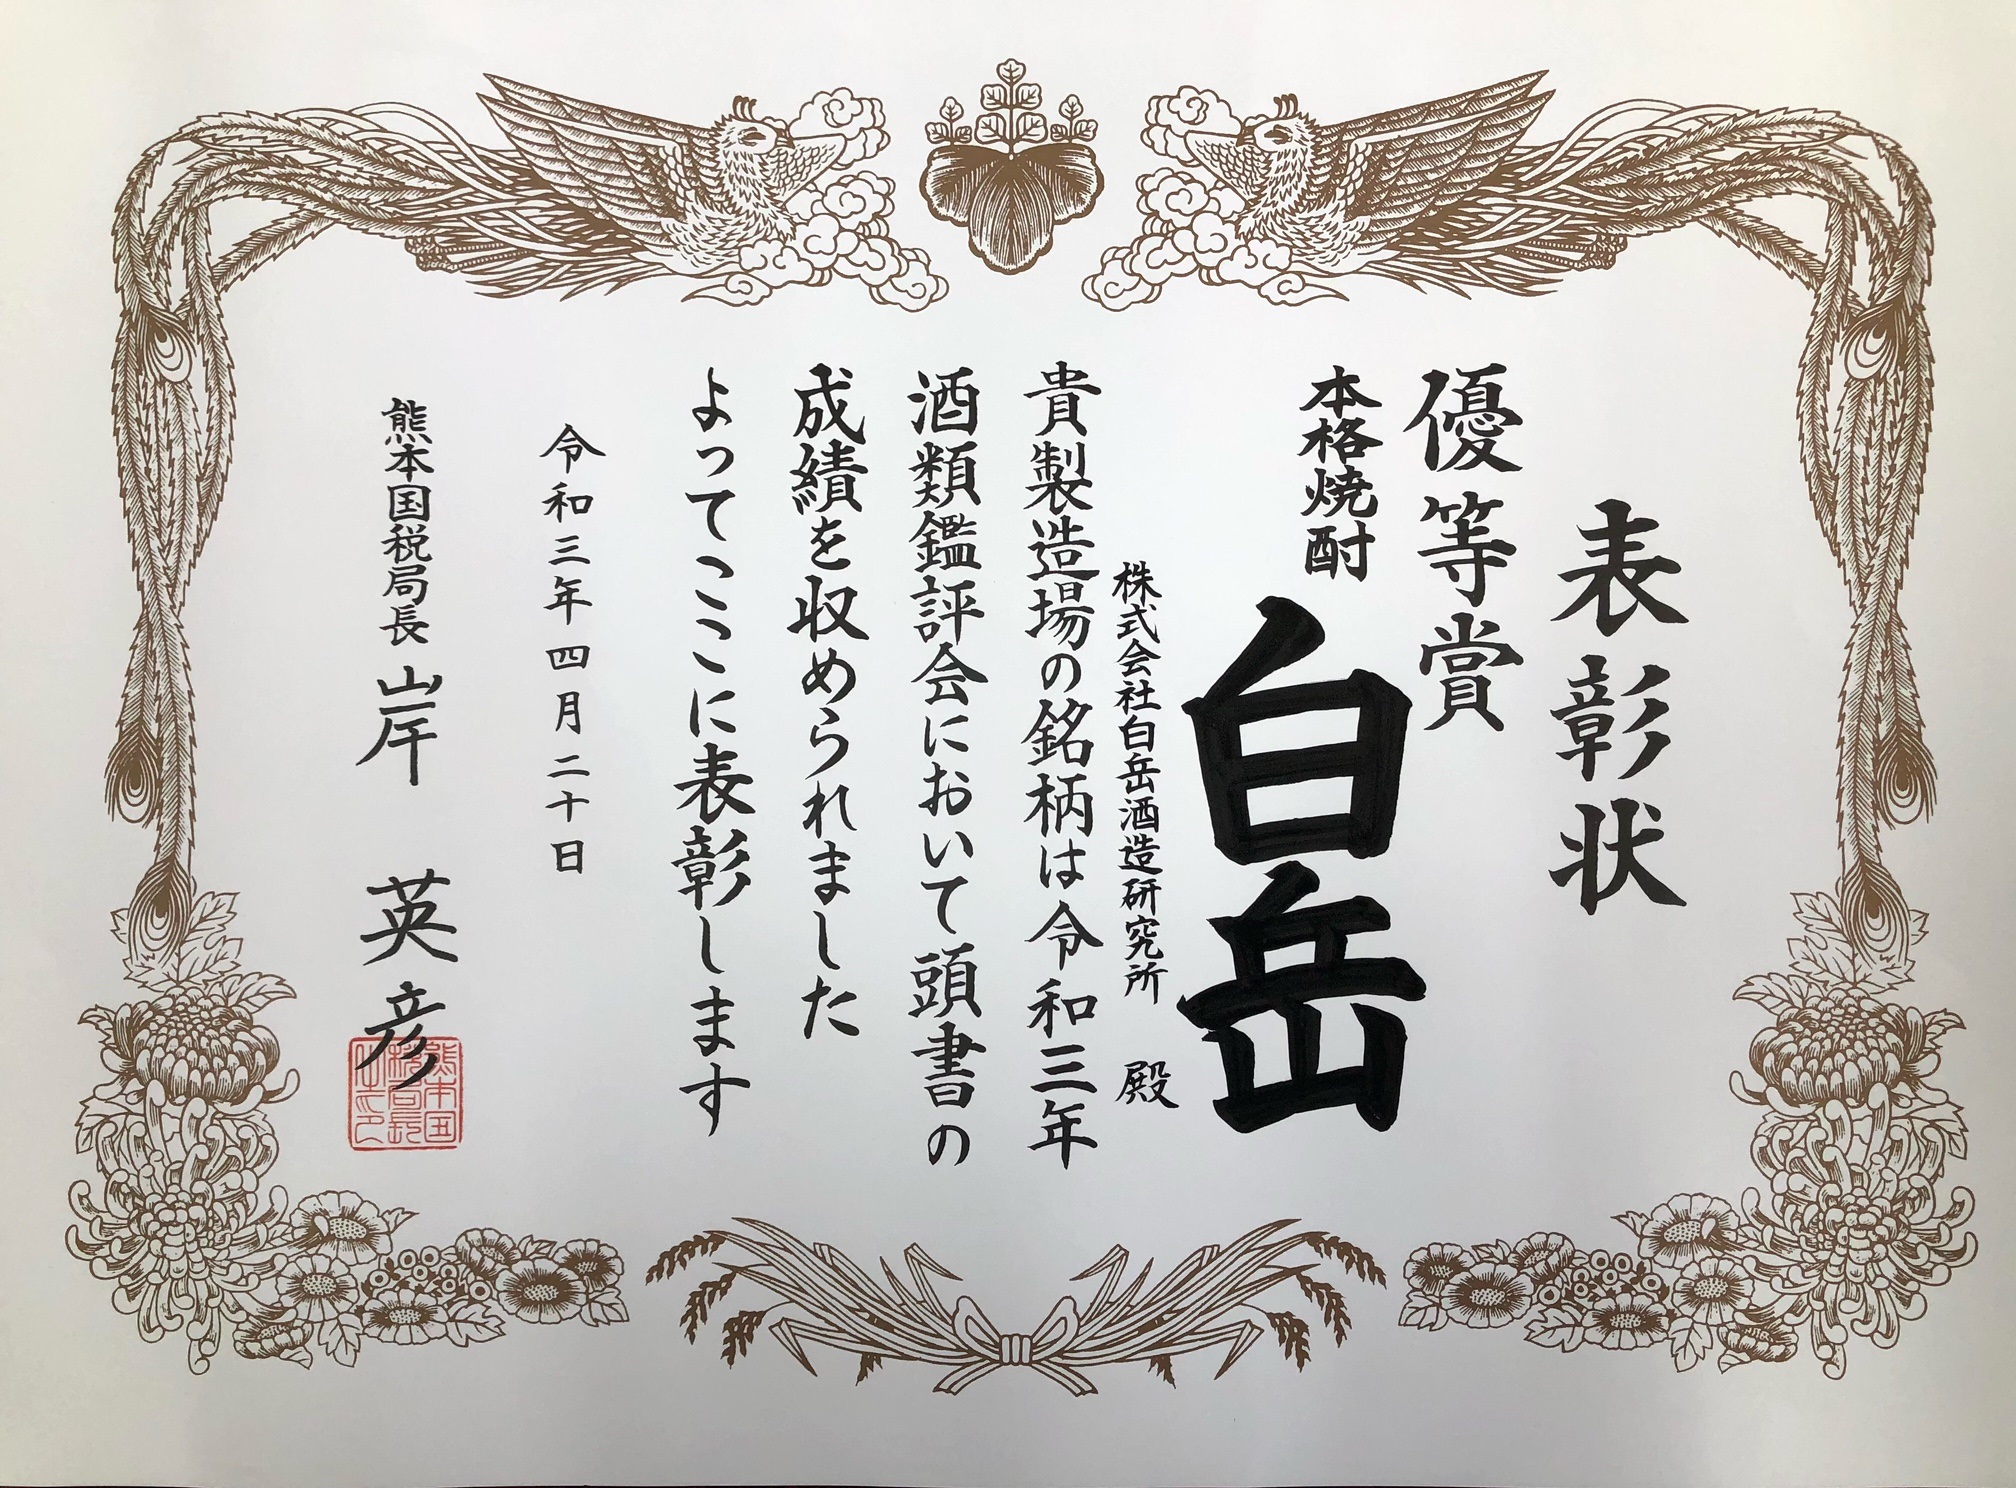 表彰状
優等賞
本格焼酎
白岳
株式会社白岳酒造研究所 殿
貴製造場の銘柄は令和三年
酒類鑑評会において頭書の
成績を収められました
よってここに表彰します
令和三年四月二十日
熊本国税局長 山岸 英彦
熊本国
税局長
之印